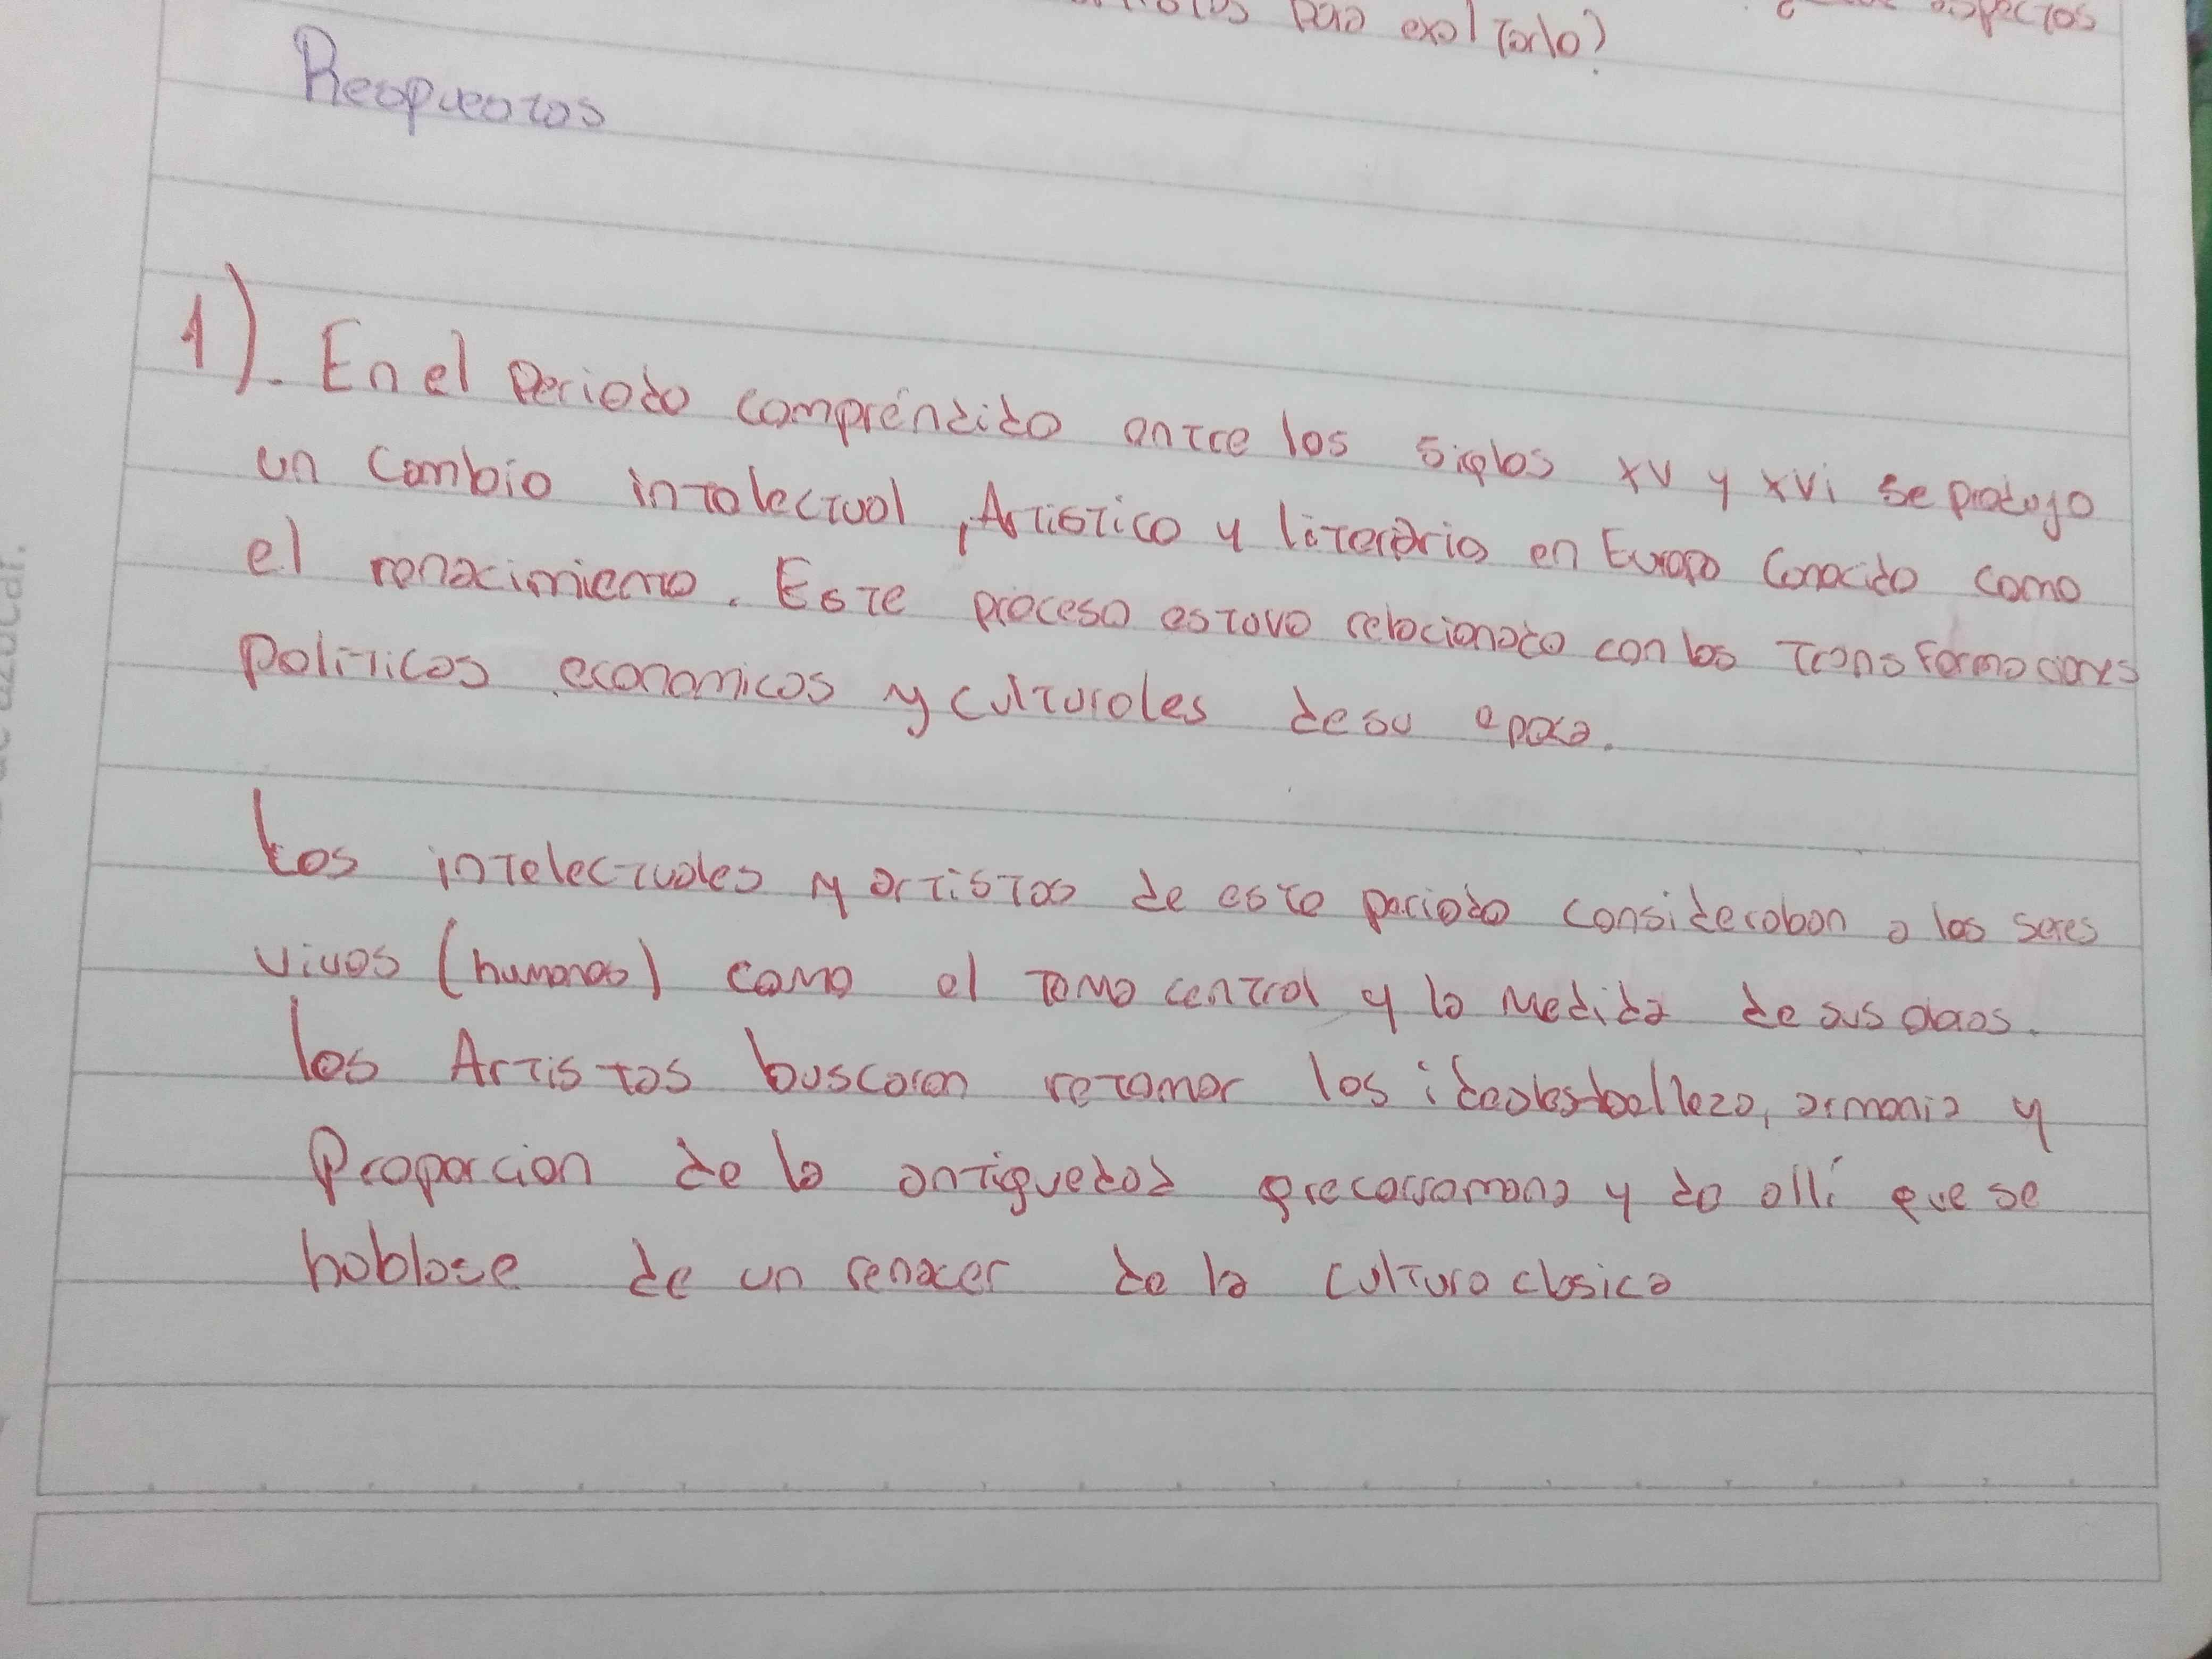 para exaltarlo? aspectos
Respuestas
1). En el periodo compréndido entre los siglos XV y XVi se produjo
un cambio intelectual, Artistico y literario en Europa Conocido como
el renacimiento. Este proceso estuvo relacionado con las transformaciones
politicas economicos y culturales de su epoca.
Los intelectuales y artistas de este periodo consideraban a los seres
vivos (humanos) como el tema central y la medida de sus obras.
los Artistas buscaron retomar los ideales belleza, armonia y
Proporcion de la antiguedad grecorromana y de allí que se
hablase de un renacer de la cultura clasica